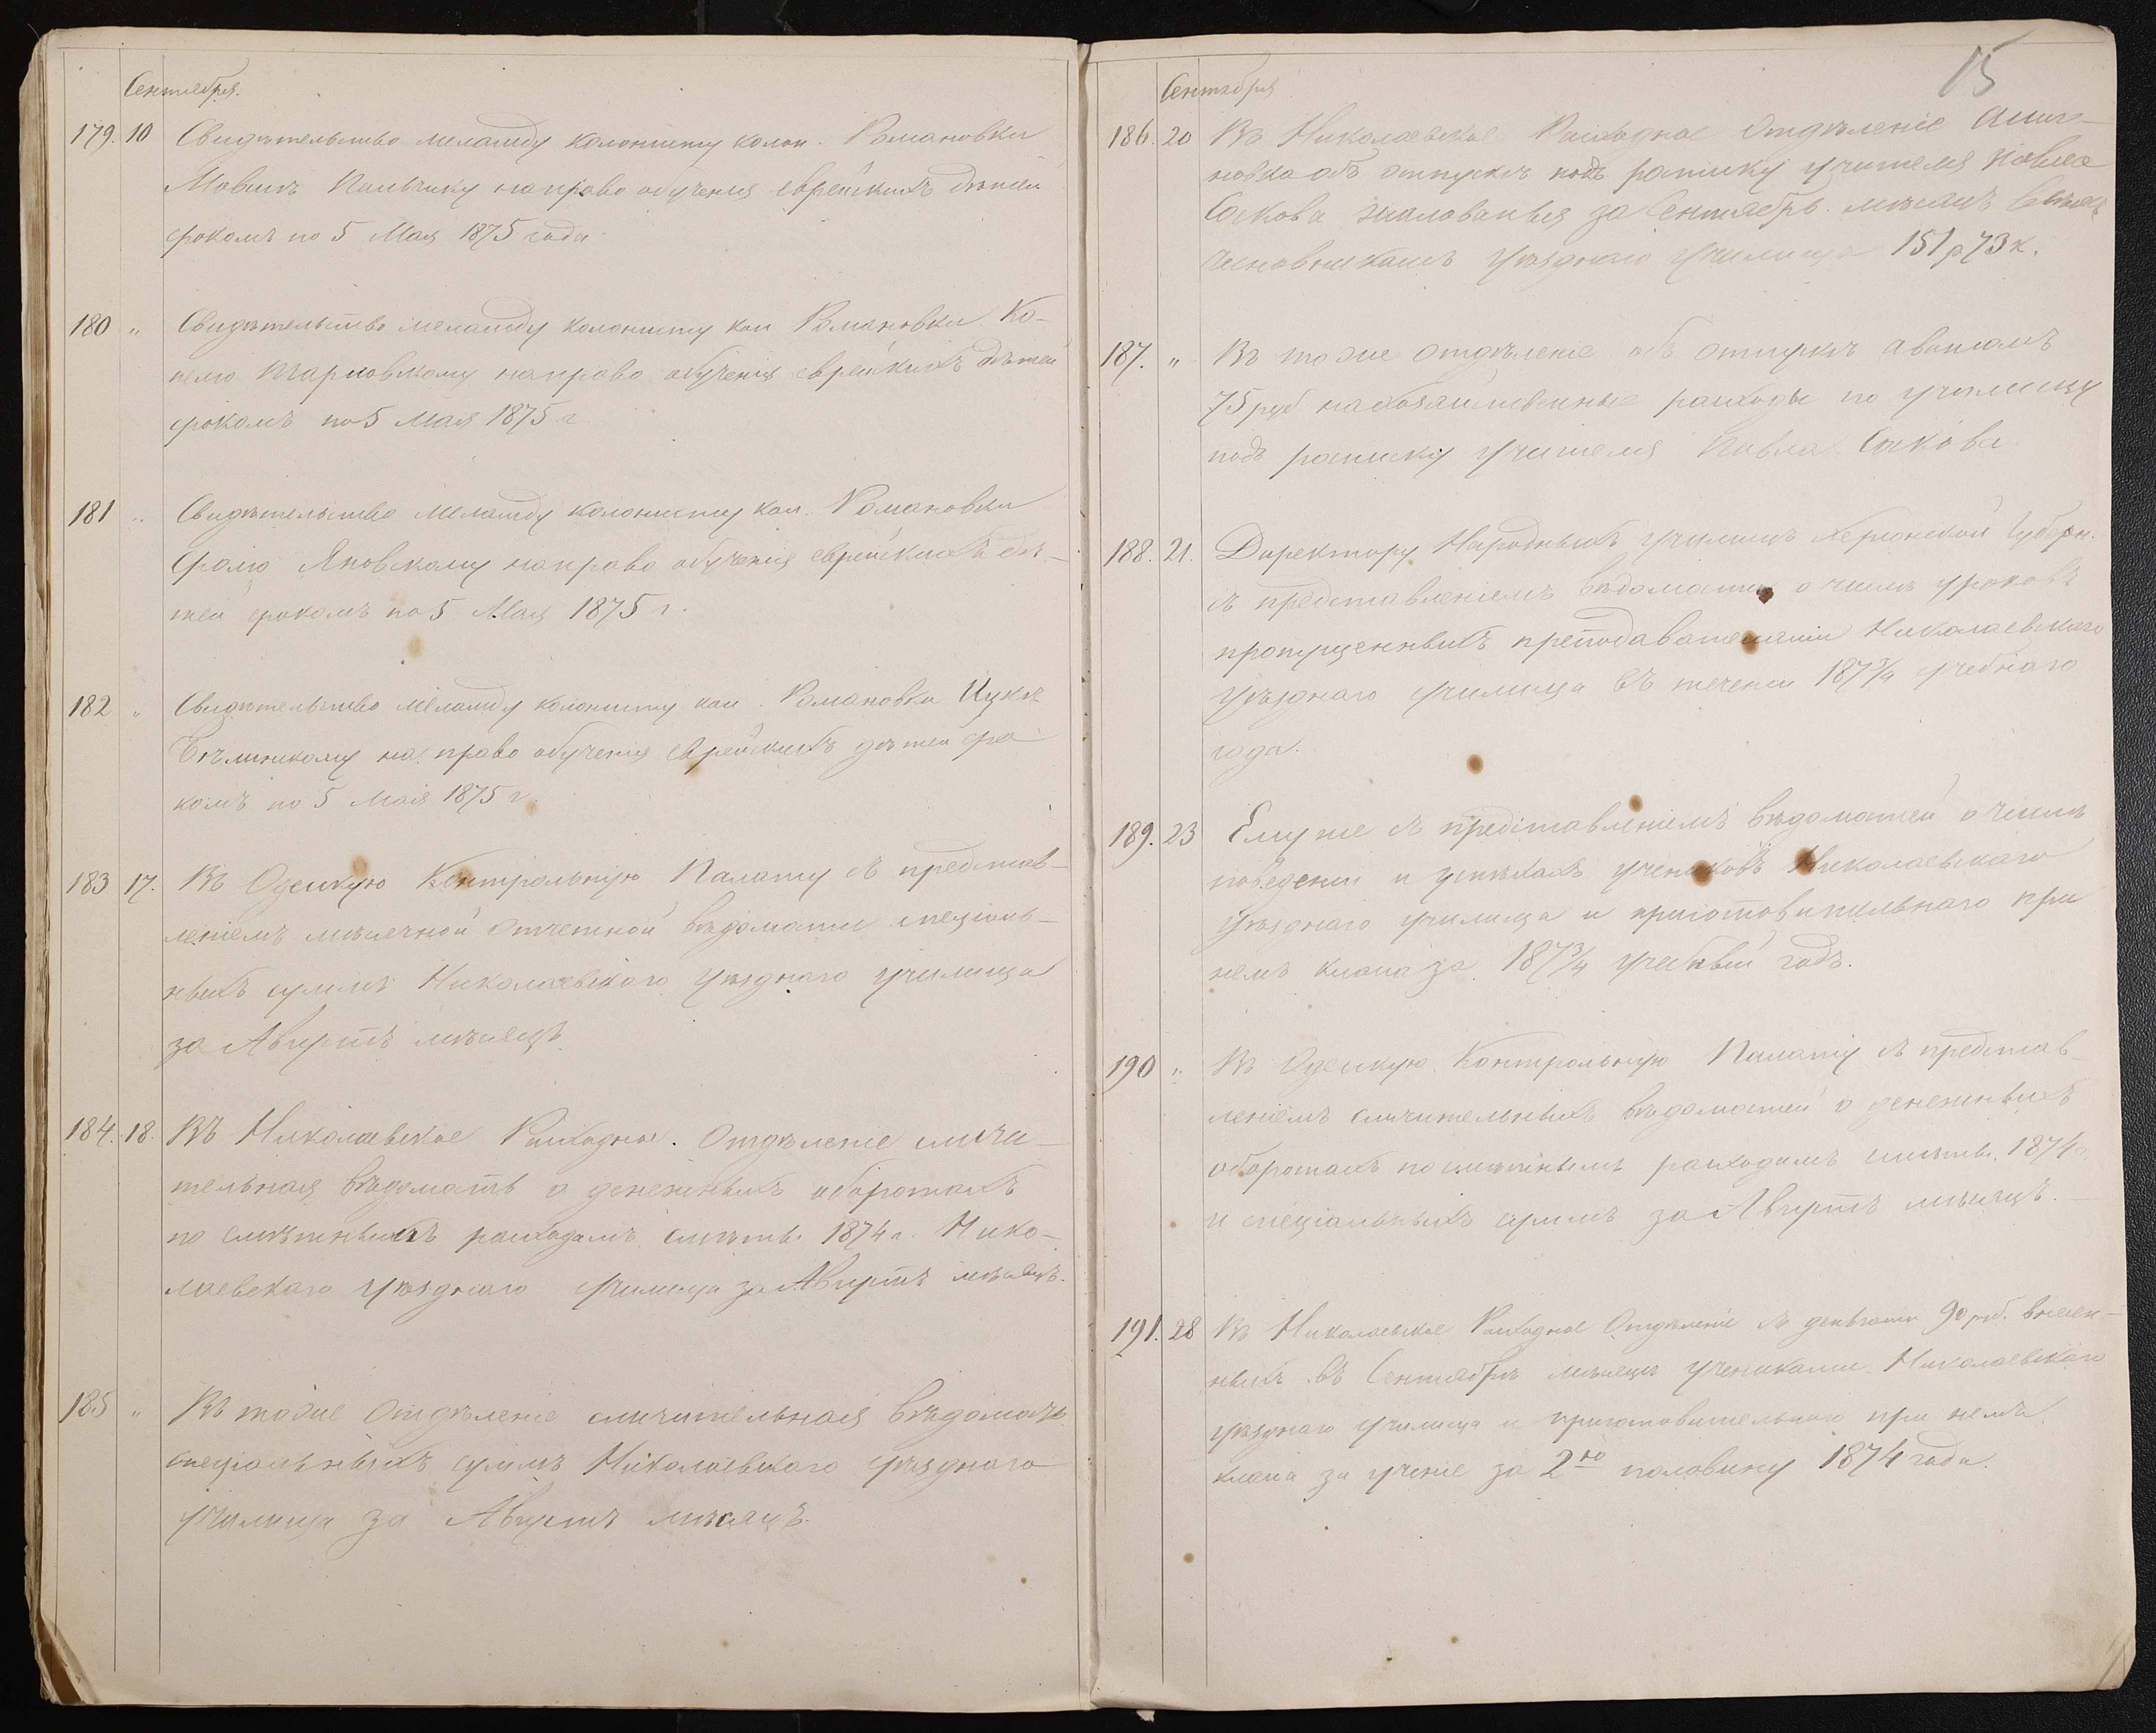 Сентября.
179. 10 Свидѣтельство меламду колонисту колон. Романовки
на право обученія еврейскихъ дѣтей
срокомъ по 5 Мая 1875 года
180 " Свидѣтельство меламду колонисту кол Романовки Ко-
пелю Тарновскому на право обученія еврейскихъ дѣтей
срокомъ по 5 Мая 1875 г
181 " Свидѣтельство меламду колонисту кол. Романовки
Сролю Яновскому на право обученія еврейскихъ дѣ-
тей срокомъ по 5 Мая 1875 г.
182 " Свидѣтельство меламду колонисту кол. Романовки Ицке
на право обученія еврейскихъ дѣтей сро-
комъ по 5 Мая 1875 г.
183 17. Въ Одесскую Контрольную Палату съ представ-
леніемъ мѣсячной отчетной вѣдомости спеціаль-
ныхъ суммъ Николаевскаго уѣзднаго училища
за Августъ мѣсяцъ.
184. 18. Въ Николаевское Расходное Отдѣленіе сличи-
тельная вѣдомость о денежныхъ оборотахъ
по смѣтнымъ расходамъ смѣты 1874 г. Нико-
лаевскаго уѣзднаго училища за Августъ мѣсяцъ.
185 " Въ тоже Отдѣленіе сличительная вѣдомость
спеціальныхъ суммъ Николаевскаго уѣзднаго
училища за Августъ мѣсяцъ.
15
Сентября
186. 20 Въ Николаевское Расходное Отдѣленіе Ассиг-
новка объ отпускѣ подъ росписку учителя Павла
Сокова жалованья за Сентябрь мѣсяцъ
чиновникамъ уѣзднаго училища 151 р 73 к.
187. " Въ тоже Отдѣленіе объ отпускѣ авансомъ
75 руб на хозяйственные расходы по училищу
подъ росписку учителя Павла Сокова
188. 21. Директору Народныхъ училищъ Херсонской Губерн.
съ представленіемъ вѣдомости о числѣ уроковъ
пропущенныхъ преподавателями Николаевскаго
уѣзднаго училища въ теченіи 187¾ учебнаго
года.
189. 23 Ему же съ представленіемъ вѣдомостей о числѣ
поведеніи и успѣхахъ учениковъ Николаевскаго
уѣзднаго училища и приготовительнаго при
немъ класса за 187¾ учебный годъ.
190 " Въ Одесскую Контрольную Палату съ представ-
леніемъ сличительныхъ вѣдомостей о денежныхъ
оборотахъ по смѣтнымъ расходамъ смѣты 1874 г.
и спеціальныхъ суммъ за Августъ мѣсяцъ.
191. 28 Въ Николаевское Расходное Отдѣленіе съ деньгами 90 руб. внесен-
ныхъ въ Сентябрѣ мѣсяцѣ учениками Николаевскаго
уѣзднаго училища и приготовительнаго при немъ
класса за ученіе за 2ю половину 1874 года.